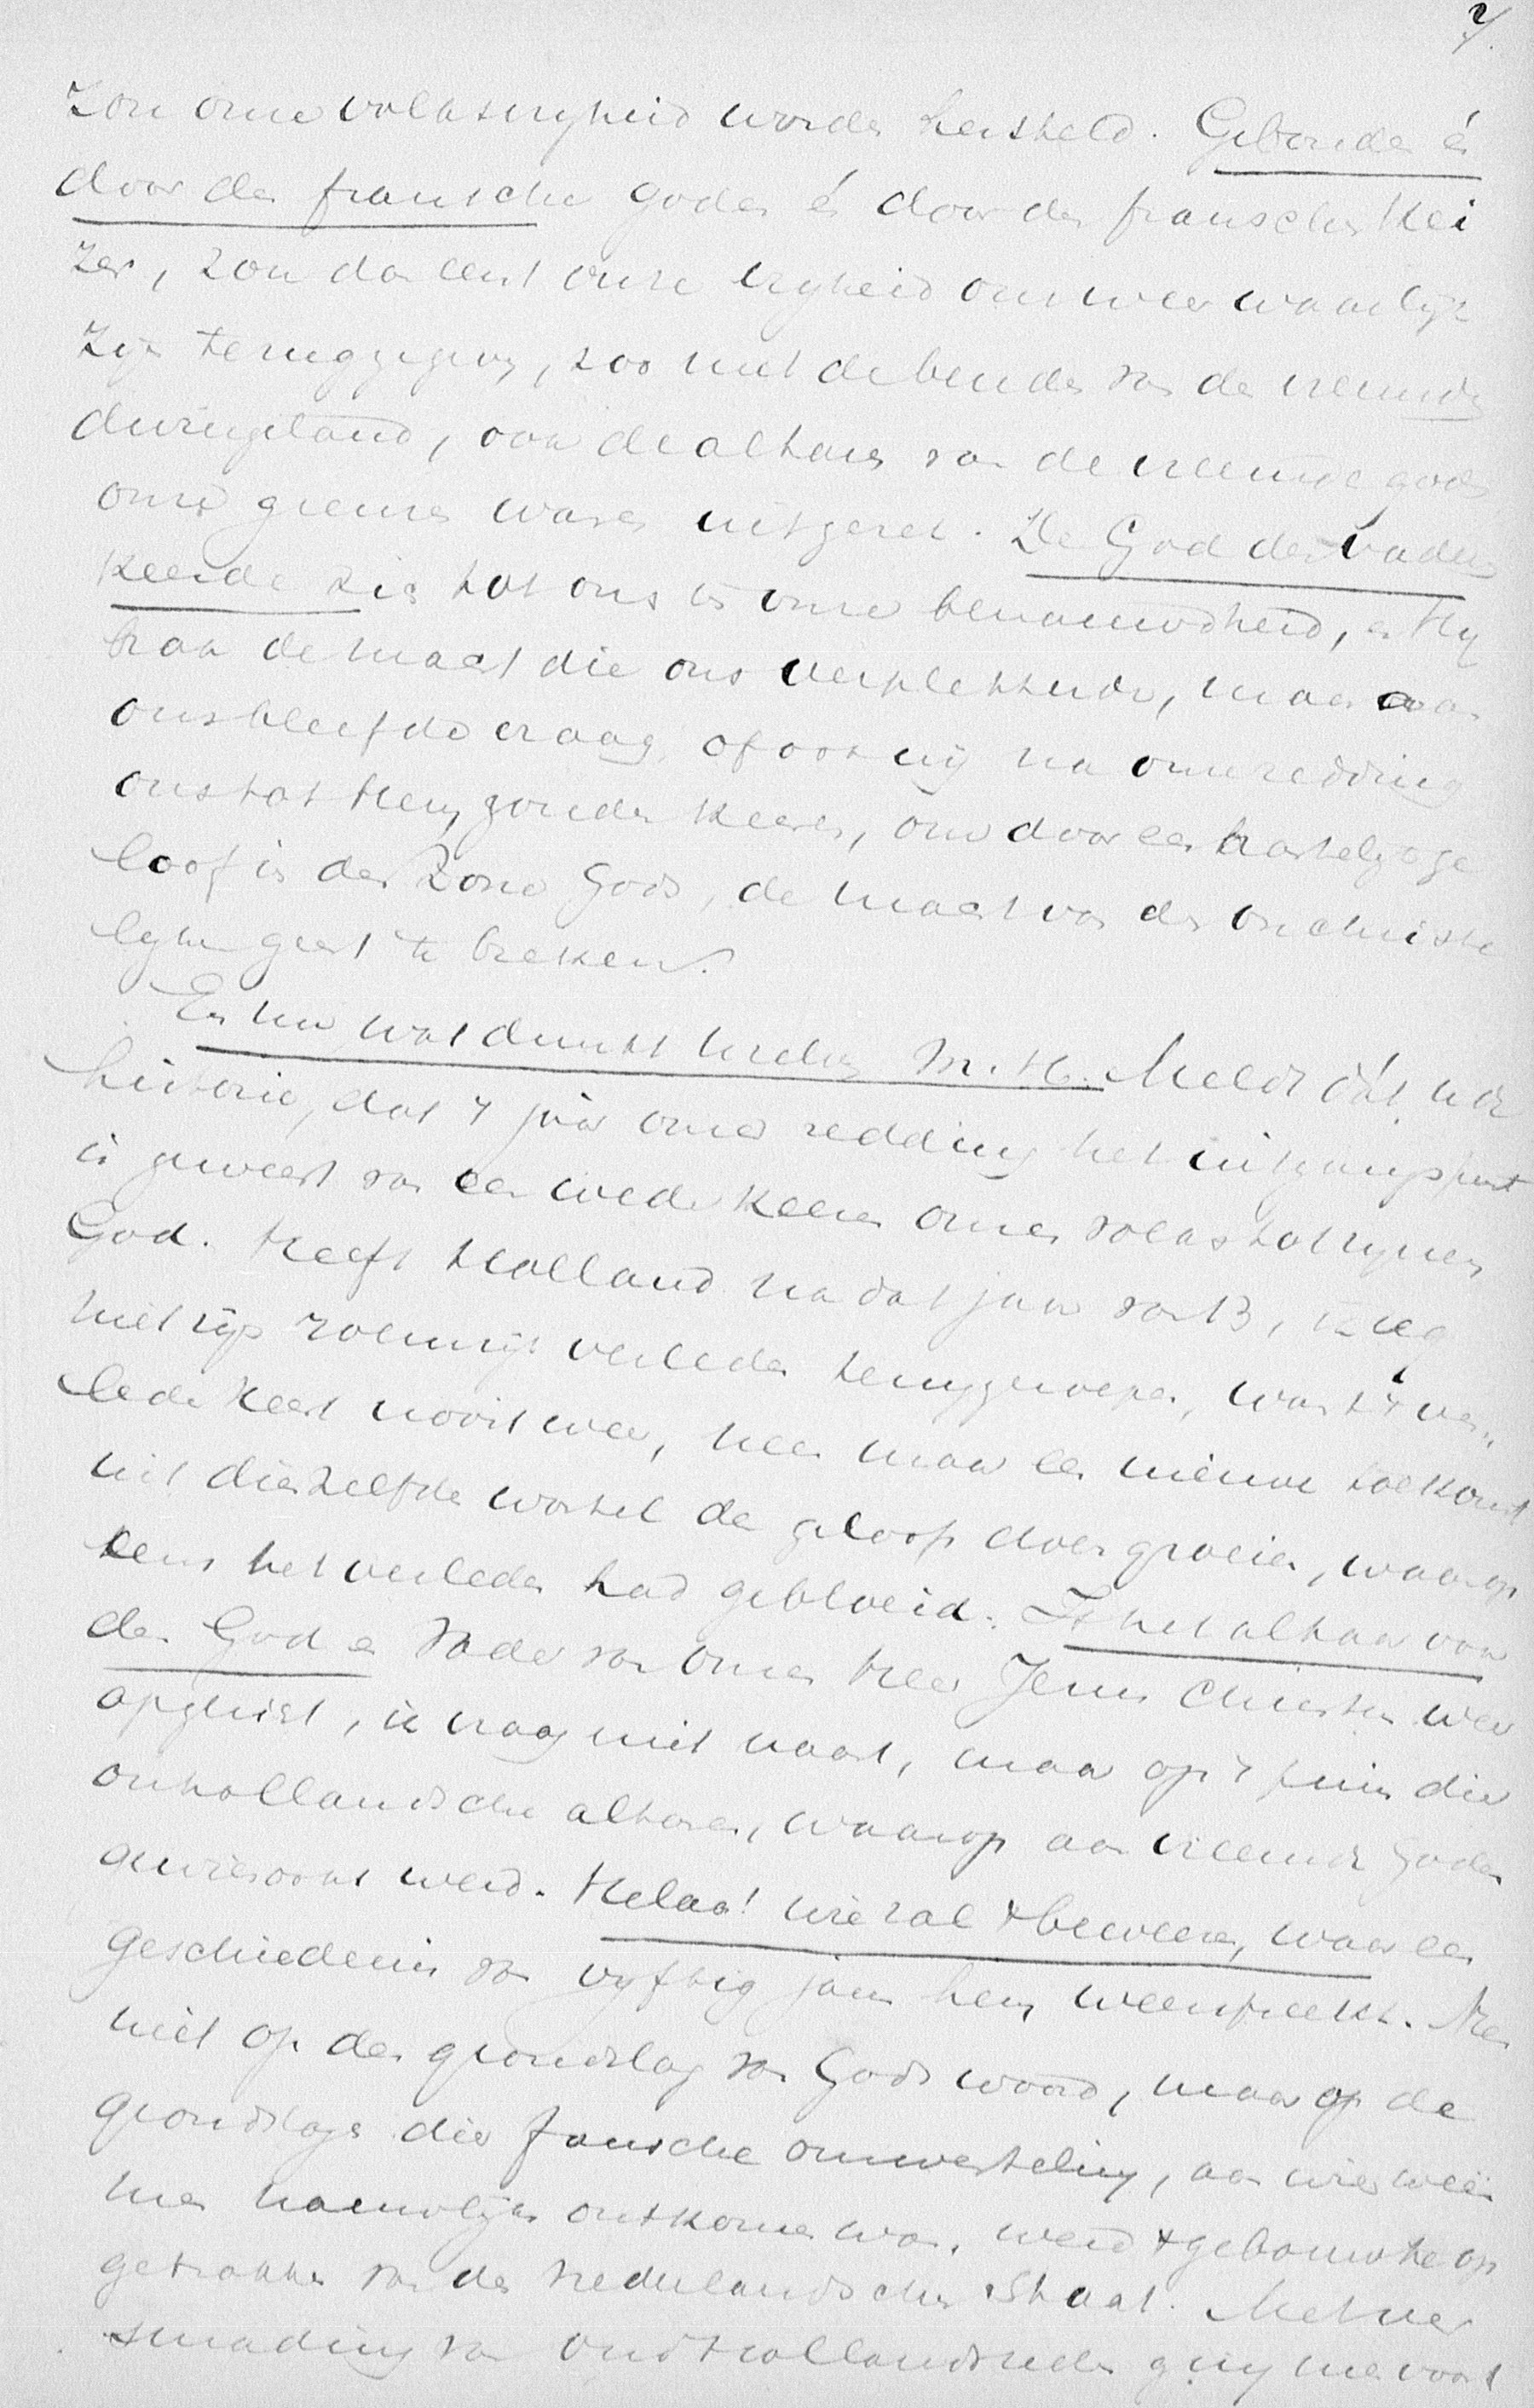 7.
zou onze volksvryheid worden hersteld. Gebonden én
door den franschen goden én door den franschen Kei
zer, zou dan eerst onze vryheid ons weer waarlijk
zijn teruggegeven, zoo met de benden van de vreemden
dwingeland, ook de altaren van de vreemde goden
onze grenzen waren uitgezet. De God der vaderen
keerde zich tot ons in onze benauwdheid, en Hy
brak de macht die ons verpletterde, maar aan
ons bleef de vraag, of ook wij na onze redding
ons tot Hem zouden keeren, om door een hartelijk ge
loof in den Zone Gods, de macht van den onchriste
lyken geest te breken.
En nu wat dunkt u M. H. Meldt dát u de
historie, dat 't jaar onzer redding het uitgangspunt
is geweest van een wederkeeren onzes volks tot zynen
God. Heeft Holland na dat jaar van 13, ik zeg
niet zijn roemrijk verleden teruggeroepen, want 't ver„
leden keert nooit weer, neen maar een nieuwe toekomst
uit diezelfde wortel des geloofs doen groeien, waarop
eens het verleden had gebloeid. Is het altaar voor
den God en Vader van onzen Heer Jezus Christus weer
opgericht, ik vraag niet naast, maar op 't puin dier
onhollandsche altaren, waarop aan vreemde Goden
gewierookt werd. Helaas! wie zal 't beweren, waar een
geschiedenis van vyftig jaren hem weerspreekt. Neen
niet op den grondslag van Gods woord, maar op de
grondslagen dier fransche omwenteling, aan wier weeën
men nauwlijks ontkomen was, werd 't gebouw he op
getrokken van den Nederlandschen Staat. Met ver
smading van Oud Hollands zeden ging men voort